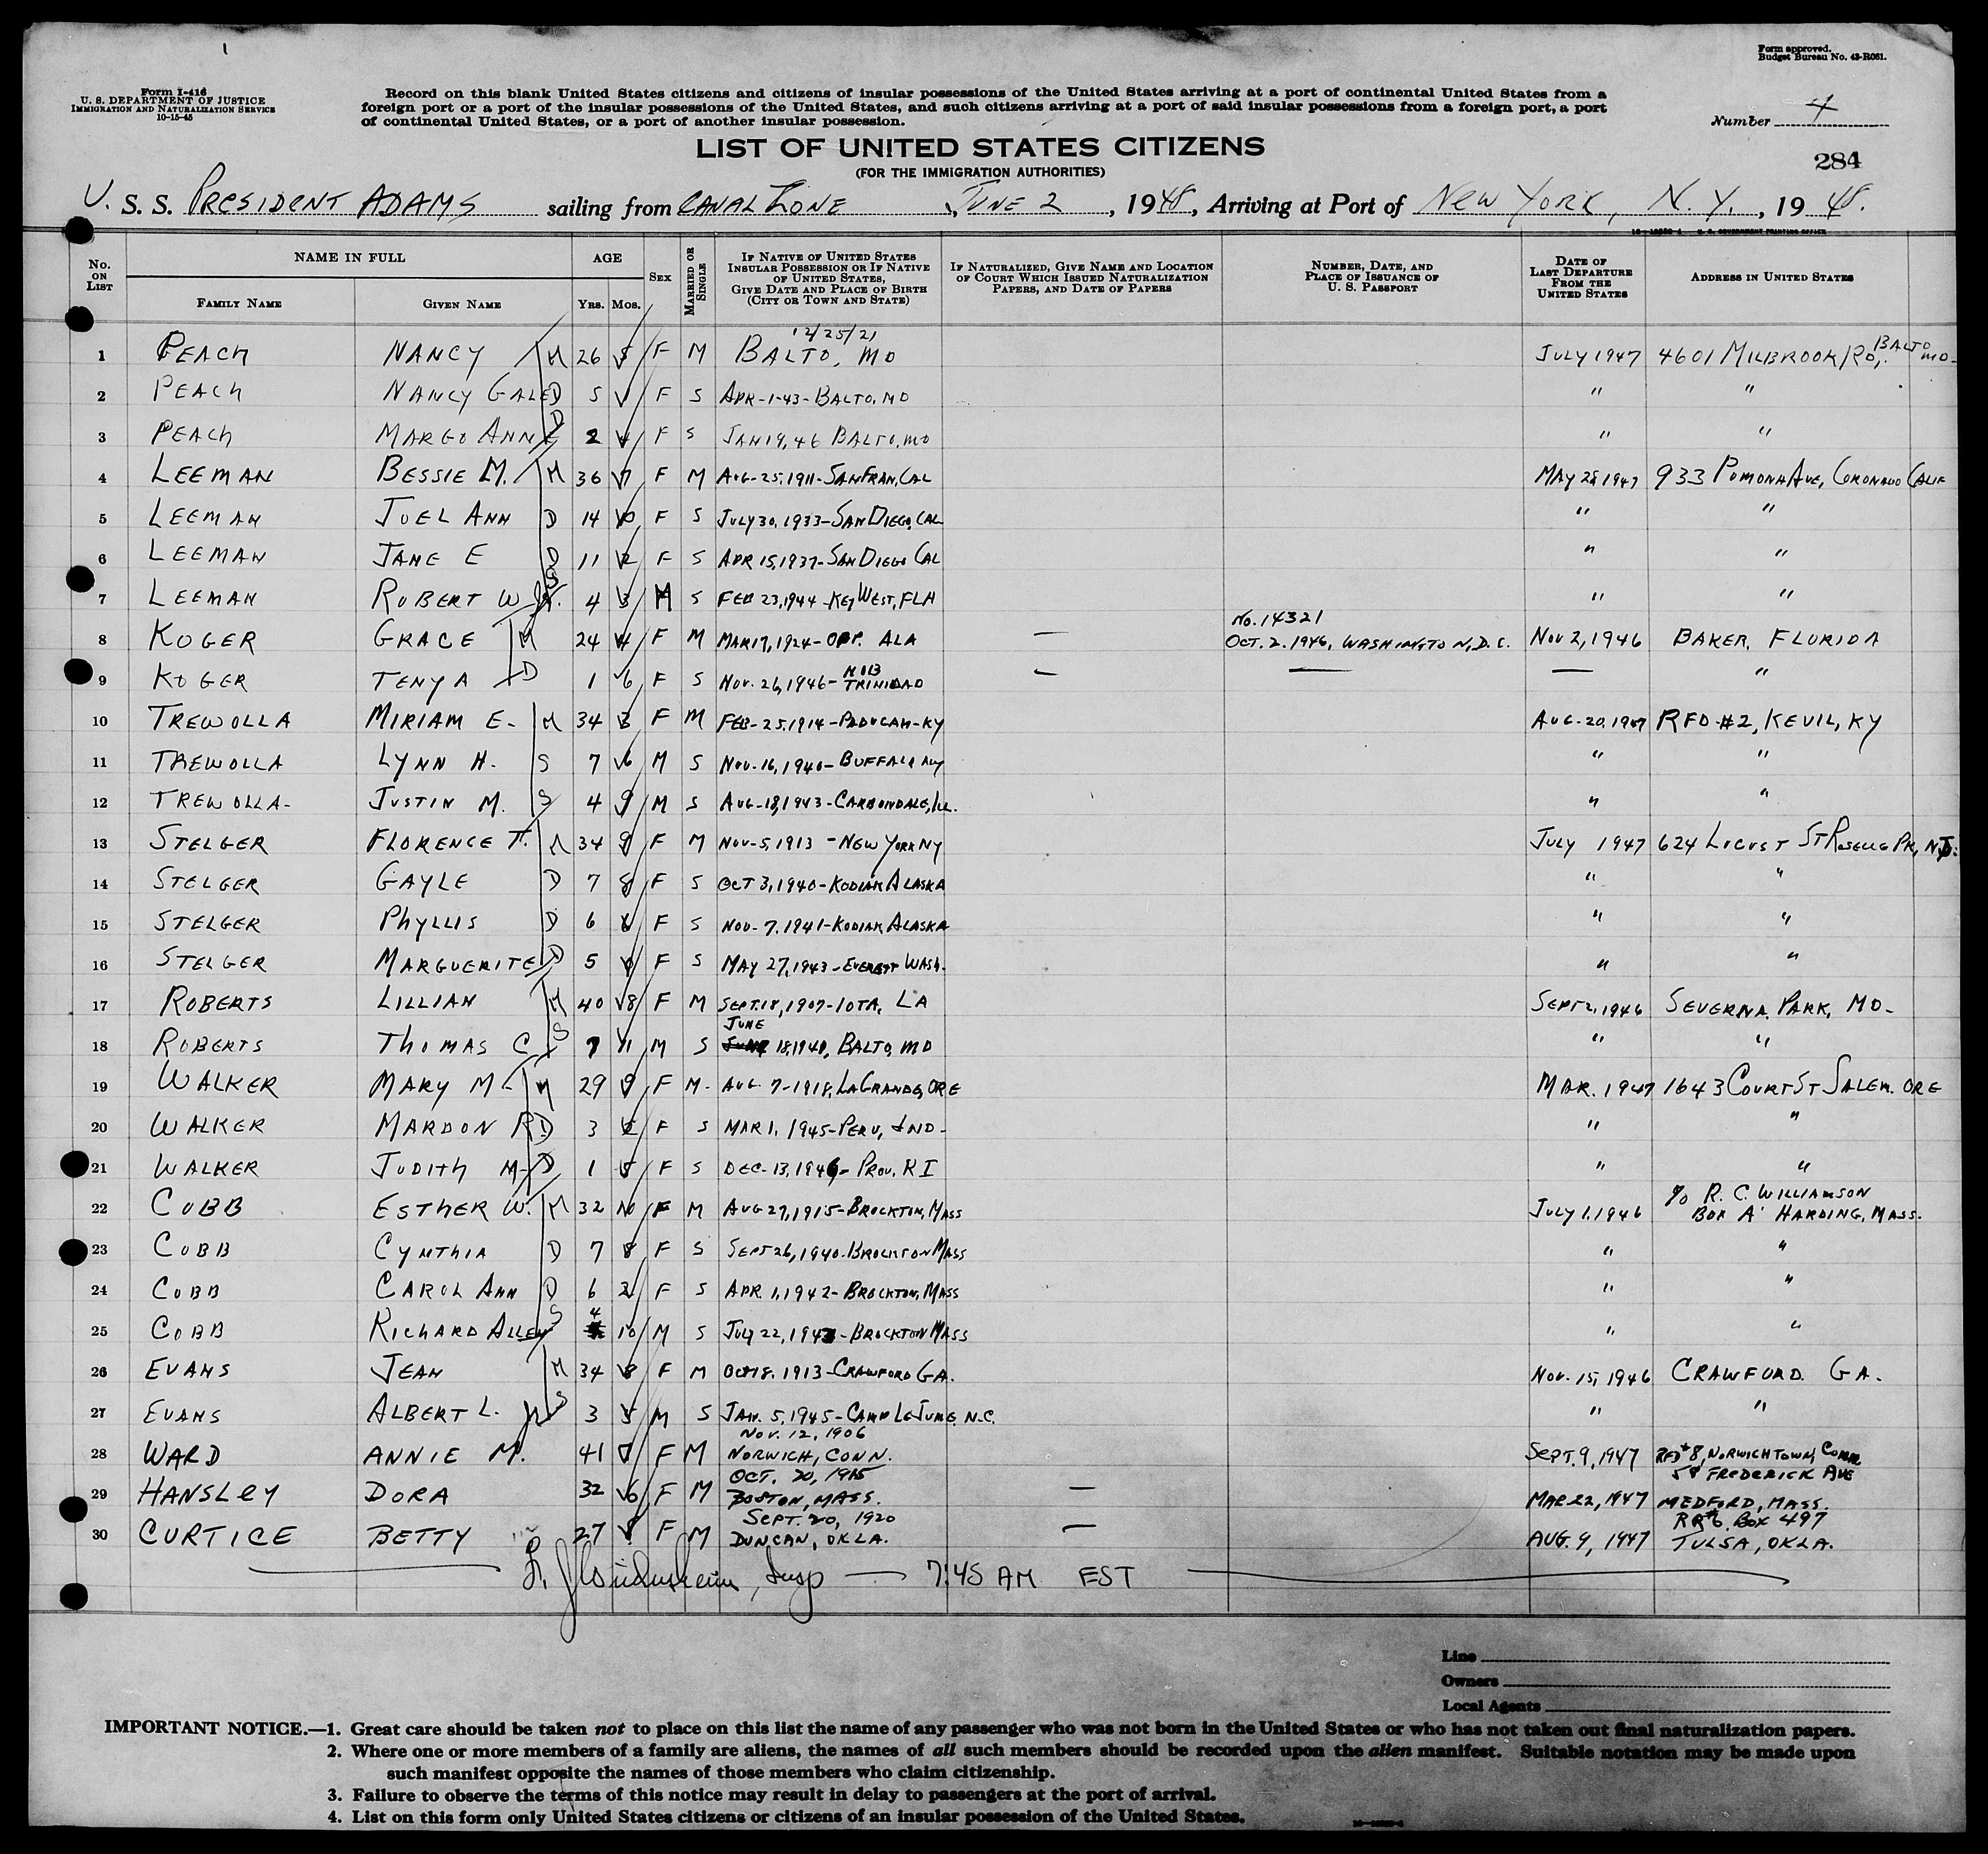 Form approved.
Budget Bureau No. 43-R061.
Form I-416
U. S. DEPARTMENT OF JUSTICE
IMMIGRATION AND NATURALIZATION SERVICE
10-15-45
Record on this blank United States citizens and citizens of insular possessions of the United States arriving at a port of continental United States from a
foreign port or a port of the insular possessions of the United States, and such citizens arriving at a port of said insular possessions from a foreign port, a port
of continental United States, or a port of another insular possession.
Number 4
LIST OF UNITED STATES CITIZENS
(FOR THE IMMIGRATION AUTHORITIES)
284
U. S. S. PRESIDENT ADAMS sailing from CANAL ZONE, JUNE 2, 1948, Arriving at Port of NEW YORK, N. Y., 1948.
U. S. GOVERNMENT PRINTING OFFICE
No. ON LIST
NAME IN FULL
FAMILY NAME
GIVEN NAME
AGE
YRS. MOS.
SEX
MARRIED OR SINGLE
IF NATIVE OF UNITED STATES INSULAR POSSESSION OR IF NATIVE OF UNITED STATES, GIVE DATE AND PLACE OF BIRTH (CITY OR TOWN AND STATE)
IF NATURALIZED, GIVE NAME AND LOCATION OF COURT WHICH ISSUED NATURALIZATION PAPERS, AND DATE OF PAPERS
NUMBER, DATE, AND PLACE OF ISSUANCE OF U. S. PASSPORT
DATE OF LAST DEPARTURE FROM THE UNITED STATES
ADDRESS IN UNITED STATES
1 PEACH NANCY M 26 5 F M 12/25/21 BALTO, MD JULY 1947 4601 MILBROOK RD, BALTO MD-
2 PEACH NANCY GALE D 5 F S APR-1-43-BALTO, MD " "
3 PEACH MARGO ANN D 2 4 F S JAN 19, 46 BALTO, MD " "
4 LEEMAN BESSIE M. M 36 F M AUG-25, 1911-SAN FRAN, CAL MAY 28, 1947 933 POMONA AVE, CORONADO CALIF
5 LEEMAN JOEL ANN D 14 10 F S JULY 30, 1933-SAN DIEGO, CAL " "
6 LEEMAN JANE E D 11 F S APR 15, 1937-SAN DIEGO CAL " "
7 LEEMAN ROBERT W JR. S 4 3 M S FEB 23, 1944-KEY WEST, FLA " "
8 KOGER GRACE M 24 F M MAR 17, 1924-OPP. ALA — No. 14321 OCT. 2. 1946, WASHINGTON, D. C. NOV 2, 1946 BAKER, FLORIDA
9 KOGER TENYA D 1 6 F S NOV. 26, 1946-NOB TRINIDAD — — — "
10 TREWOLLA MIRIAM E- M 34 3 F M FEB-25, 1914-PADUCAH-KY AUG-20, 1947 RFD-#2, KEVIL, KY
11 TREWOLLA LYNN H. S 7 6 M S NOV-16, 1940-BUFFALO NY " "
12 TREWOLLA- JUSTIN M. S 4 9 M S AUG-18, 1943-CARBONDALE, ILL. " "
13 STELGER FLORENCE T. M 34 F M NOV-5, 1913 -NEW YORK NY JULY 1947 624 LOCUST ST ROSELLE PK, N.J.
14 STELGER GAYLE D 7 8 F S OCT 3, 1940-KODIAK ALASKA " "
15 STELGER PHYLLIS D 6 6 F S NOV-7, 1941-KODIAK ALASKA " "
16 STELGER MARGUERITE D 5 F S MAY 27, 1943-EVERETT WASH. " "
17 ROBERTS LILLIAN M 40 8 F M SEPT. 18, 1907-IOTA, LA SEPT 2, 1946 SEVERNA PARK, MD-
18 ROBERTS THOMAS C S 7 11 M S JUNE 18, 1940, BALTO, MD " "
19 WALKER MARY M- M 29 9 F M- AUG. 7-1918, LA GRANDE, ORE MAR. 1947 1643 COURT ST SALEM. ORE
20 WALKER MARDON R D 3 F S MAR 1, 1945-PERU, IND- " "
21 WALKER JUDITH M- D 1 5 F S DEC-13, 1946-PROV. RI " "
22 COBB ESTHER W. M 32 10 F M AUG 27, 1915-BROCKTON, MASS JULY 1, 1946 c/o R. C. WILLIAMSON BOX A HARDING, MASS.
23 COBB CYNTHIA D 7 8 F S SEPT 26, 1940-BROCKTON MASS " "
24 COBB CAROL ANN D 6 2 F S APR. 1, 1942-BROCKTON, MASS " "
25 COBB RICHARD ALLEN S 4 10 M S JULY 22, 1943-BROCKTON MASS " "
26 EVANS JEAN M 34 8 F M OCT 8, 1913-CRAWFORD GA. NOV. 15, 1946 CRAWFORD. GA.
27 EVANS ALBERT L. JR S 3 5 M S JAN. 5, 1945-CAMP LEJUNE, N.C. " "
28 WARD ANNIE M. 41 F M NOV. 12, 1906 NORWICH, CONN. SEPT. 9, 1947 RFD #8, NORWICHTOWN, CONN.
29 HANSLEY DORA 32 6 F M OCT. 20, 1915 BOSTON, MASS. — MAR 22, 1947 58 FREDERICK AVE MEDFORD, MASS.
30 CURTICE BETTY 27 F M SEPT. 20, 1920 DUNCAN, OKLA. — AUG. 9, 1947 RR#6. BOX 497 TULSA, OKLA.
Insp — 7:45 AM EST
Line
Owners
Local Agents
IMPORTANT NOTICE.—1. Great care should be taken not to place on this list the name of any passenger who was not born in the United States or who has not taken out final naturalization papers.
2. Where one or more members of a family are aliens, the names of all such members should be recorded upon the alien manifest. Suitable notation may be made upon
such manifest opposite the names of those members who claim citizenship.
3. Failure to observe the terms of this notice may result in delay to passengers at the port of arrival.
4. List on this form only United States citizens or citizens of an insular possession of the United States.